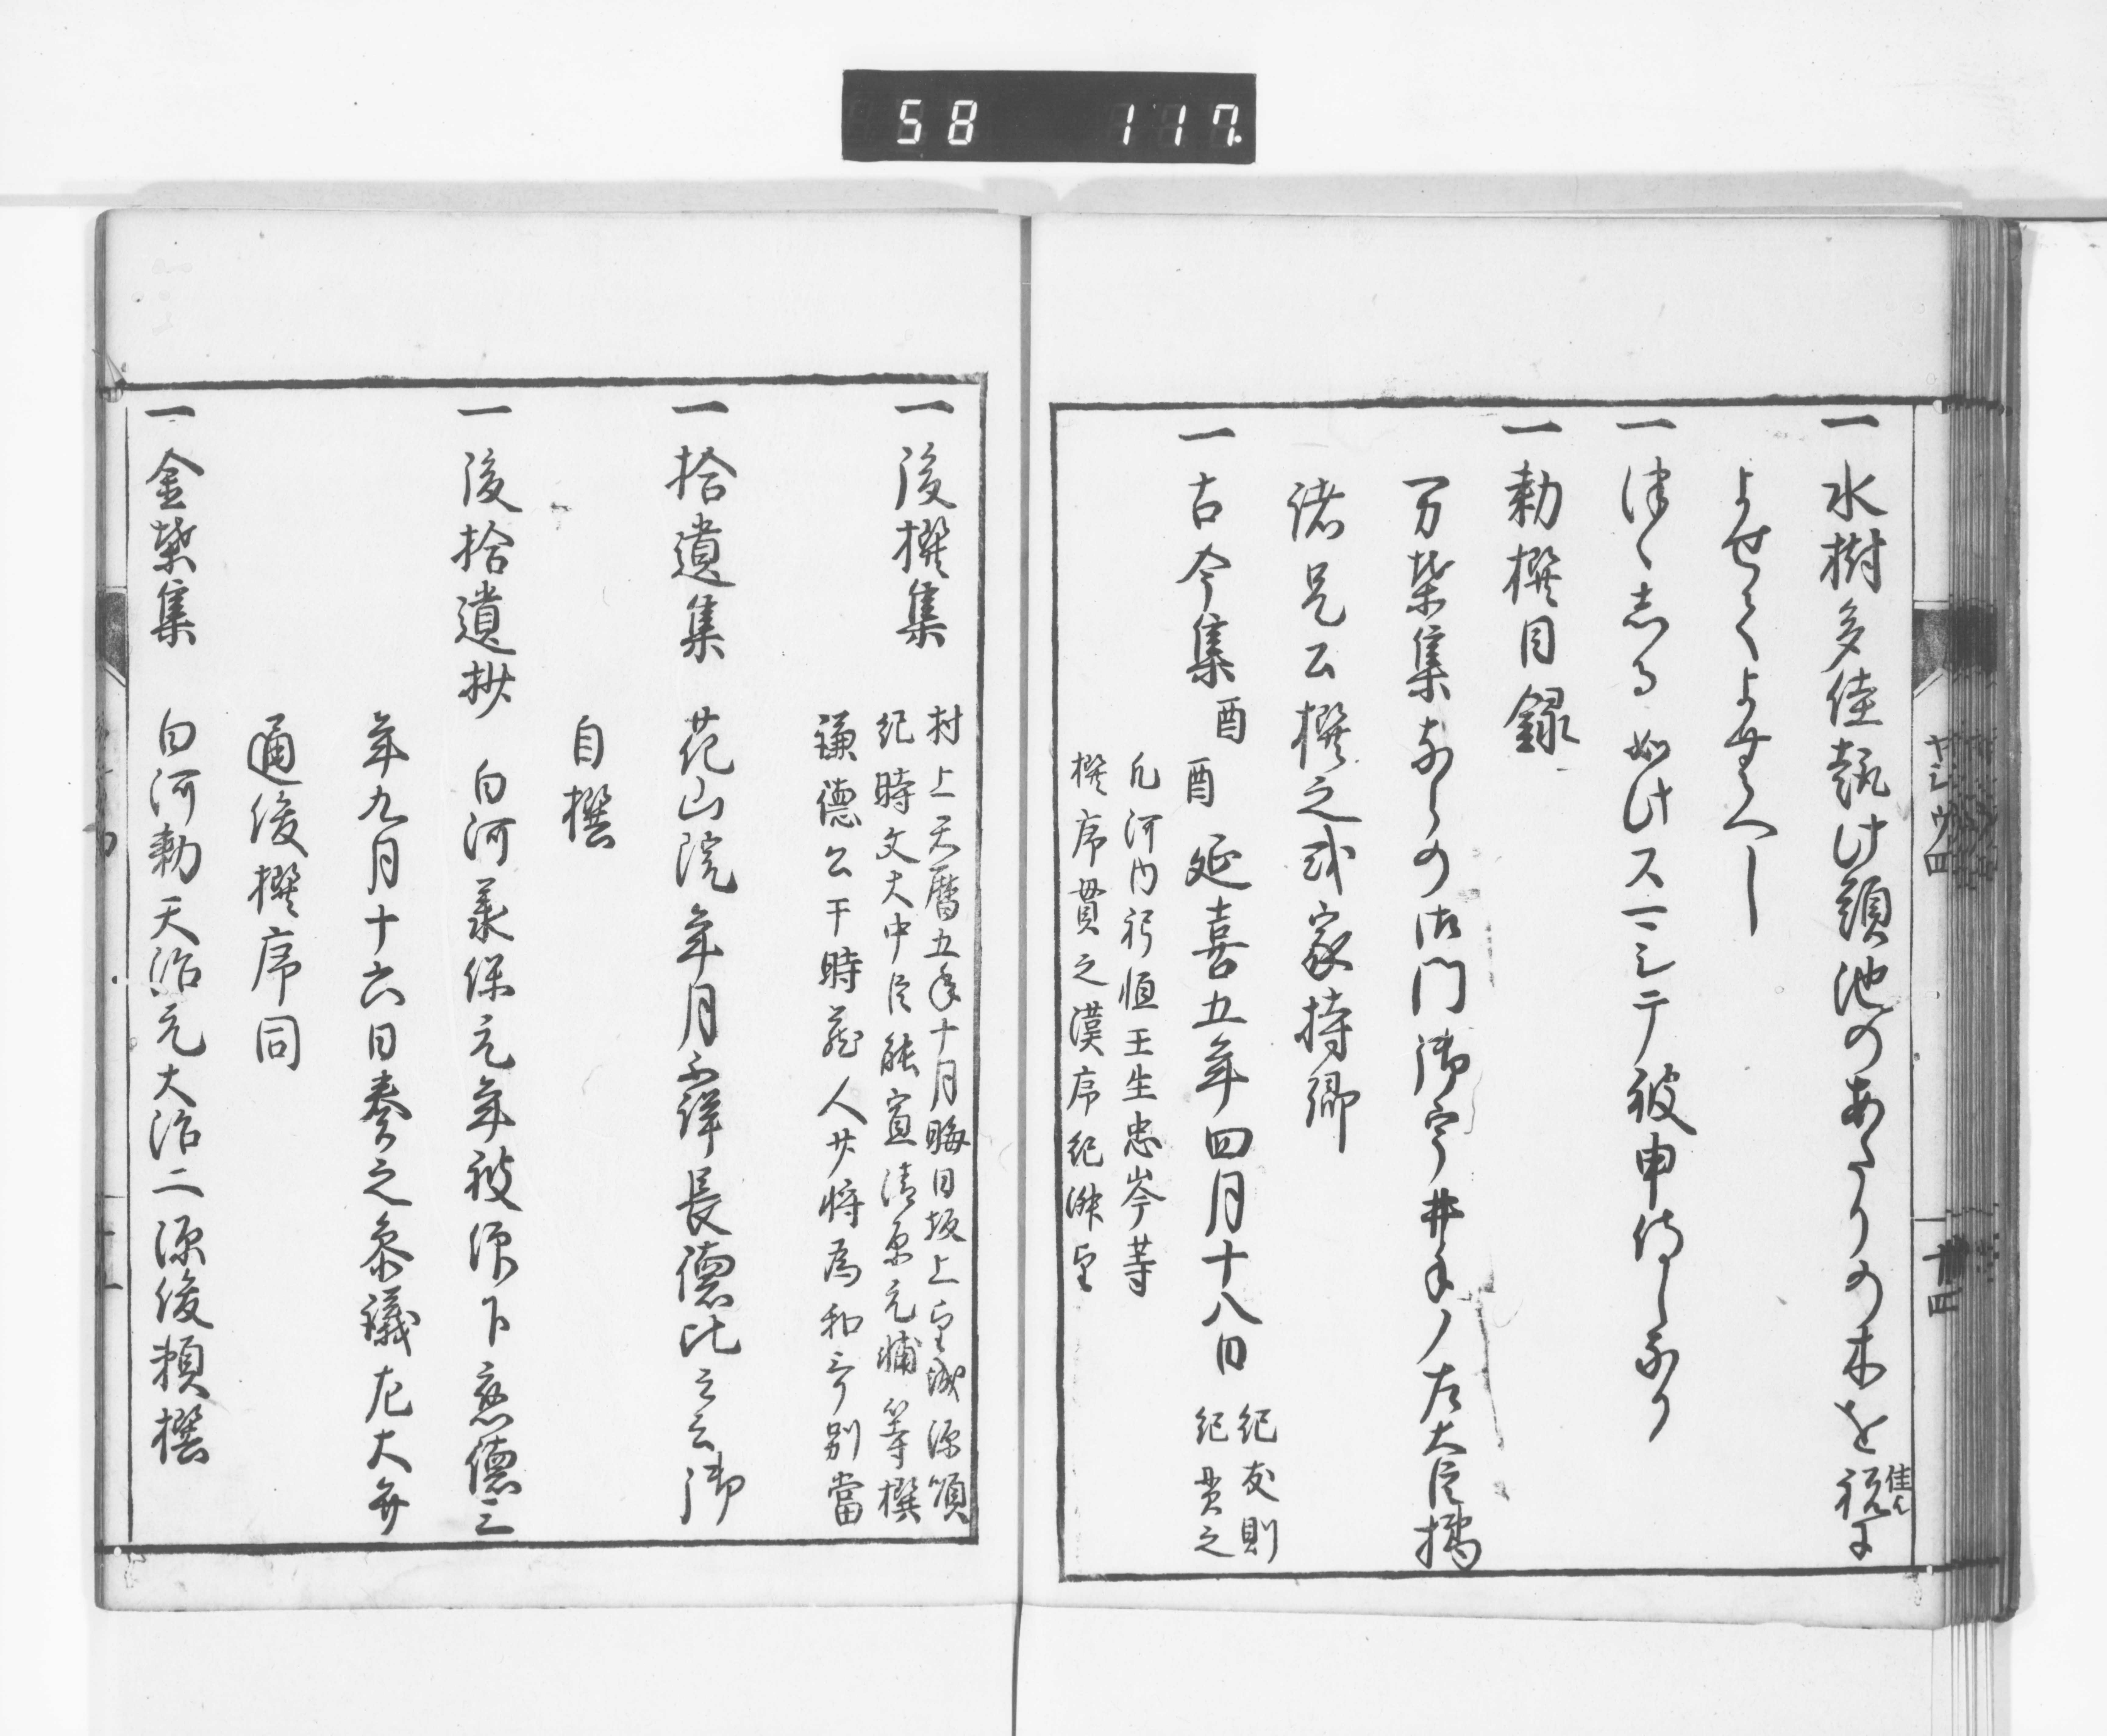 58 117
一水樹多佳趣此題池のあたりの木を祝に
佳ん
よせてよすへし
一
如此ス一ミテ被申侍しなり
一勅撰目録
万葉集ならの御門御宇井手ノ左大臣橘
諸兄公撰之或家持卿
一古今集 酉
酉 延喜五年四月十八日 紀友則 紀貫之
凡河内躬恒王生忠岑等
撰序貫之漢序紀淑望
一後撰集 村上天暦五年十月晦日坂上望城源順
紀時文大中臣能宣清原元輔等撰
謙徳公于時蔵人少将為和哥別當
一拾遺集 花山院年月不詳長徳比云云御
自撰
一後拾遺抄 白河承保元年被仰下應徳三
年九月十六日奏之参議左大弁
通俊撰序同
一金葉集 白河勅天治元大治二源俊頼撰